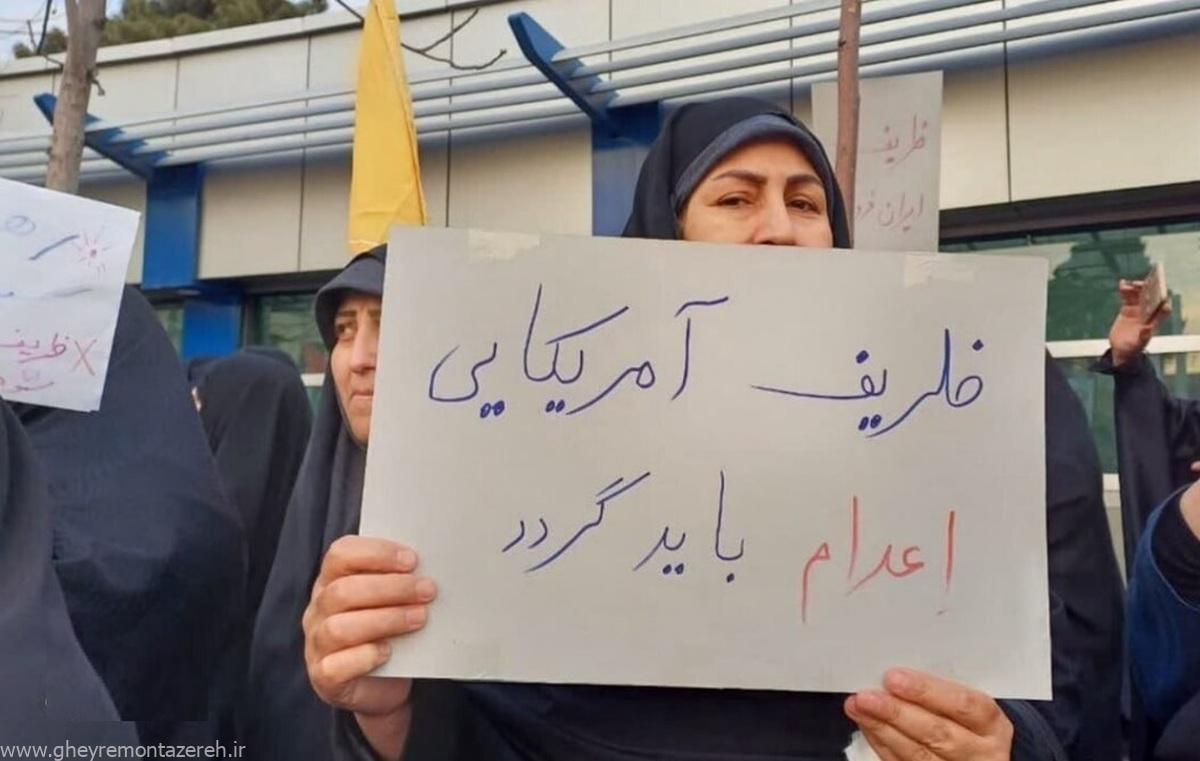 ظریف آمریکایی
اعدام باید گردد
ظریف
ایران
ظریف
www.gheyremontazereh.ir